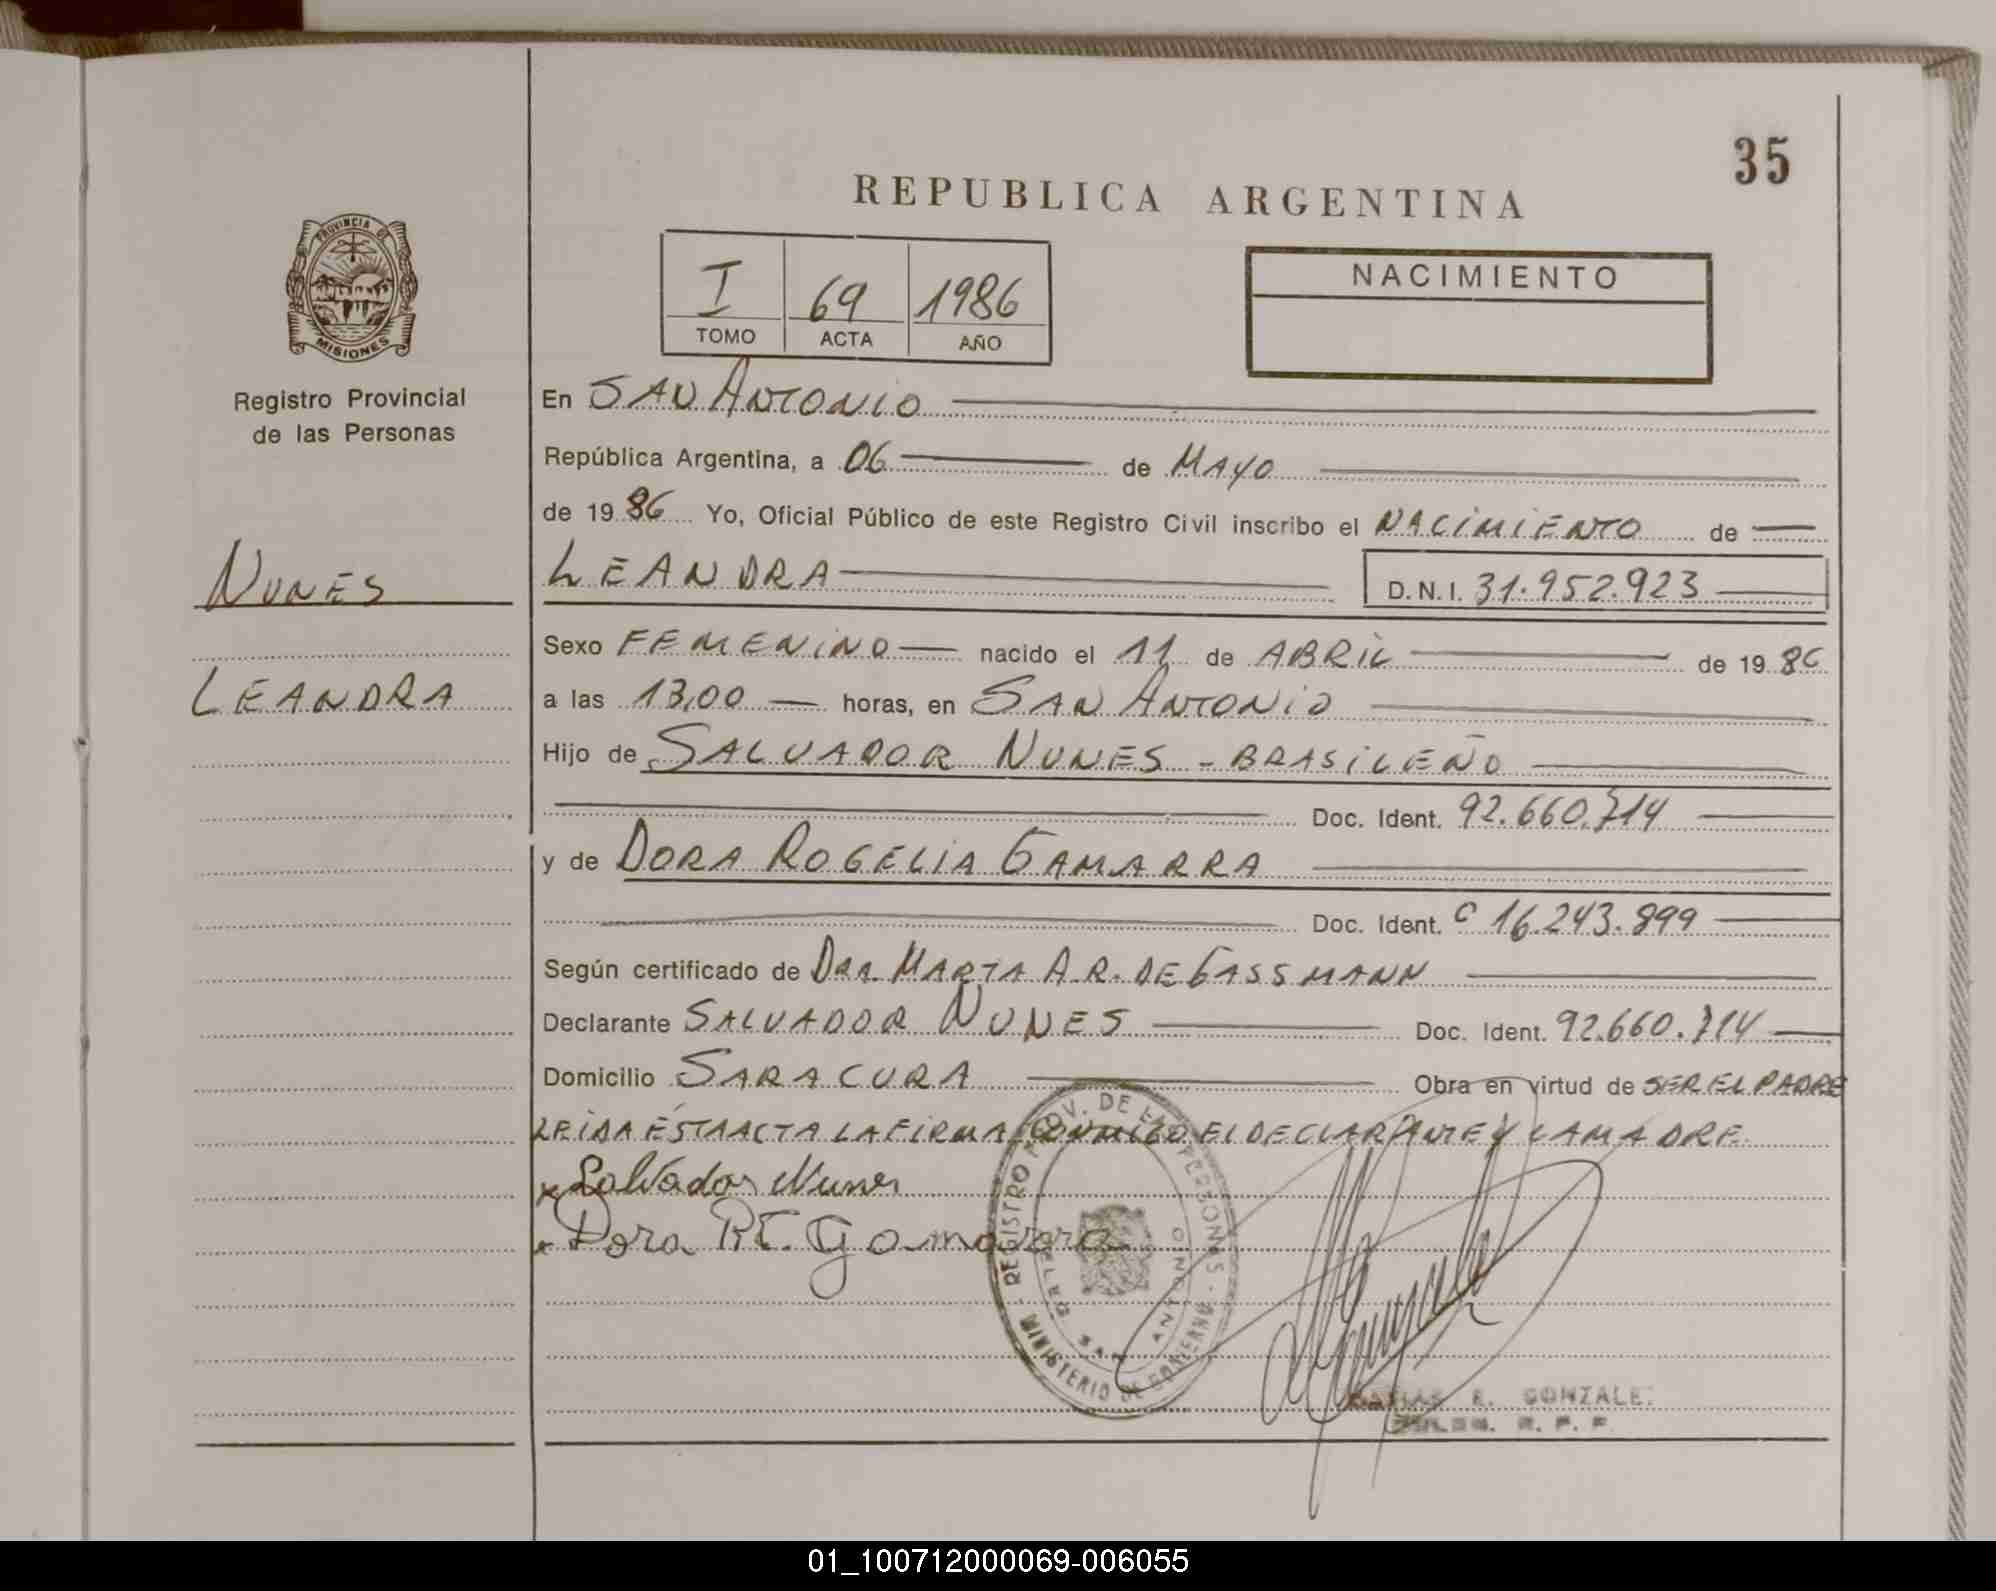 35
REPUBLICA ARGENTINA
PROVINCIA DE
MISIONES
Registro Provincial
de las Personas
NUNES
LEANDRA
I 69 1986
TOMO ACTA AÑO
NACIMIENTO
En SAN ANTONIO
República Argentina, a 06 de MAYO
de 1986 Yo, Oficial Público de este Registro Civil inscribo el NACIMIENTO de
LEANDRA D.N.I. 31.952.923
Sexo FEMENINO nacido el 11 de ABRIL de 1986
a las 13,00 horas, en SAN ANTONIO
Hijo de SALVADOR NUNES - BRASILEÑO
Doc. Ident. 92.660.714
y de DORA ROGELIA GAMARRA
Doc. Ident. C 16.243.899
Según certificado de DRA. MARTA A.R. DE GASSMANN
Declarante SALVADOR NUNES Doc. Ident. 92.660.714
Domicilio SARACURA Obra en virtud de SER EL PADRE
LEIDA ESTA ACTA LA FIRMA CONMIGO EL DECLARANTE Y LA MADRE
x Salvador Nunes
x Dora R. Gomarra
REGISTRO PROV. DE LAS PERSONAS
MINISTERIO DE GOBIERNO
SAN ANTONIO
E. GONZALEZ
R. P. P.
01_100712000069-006055